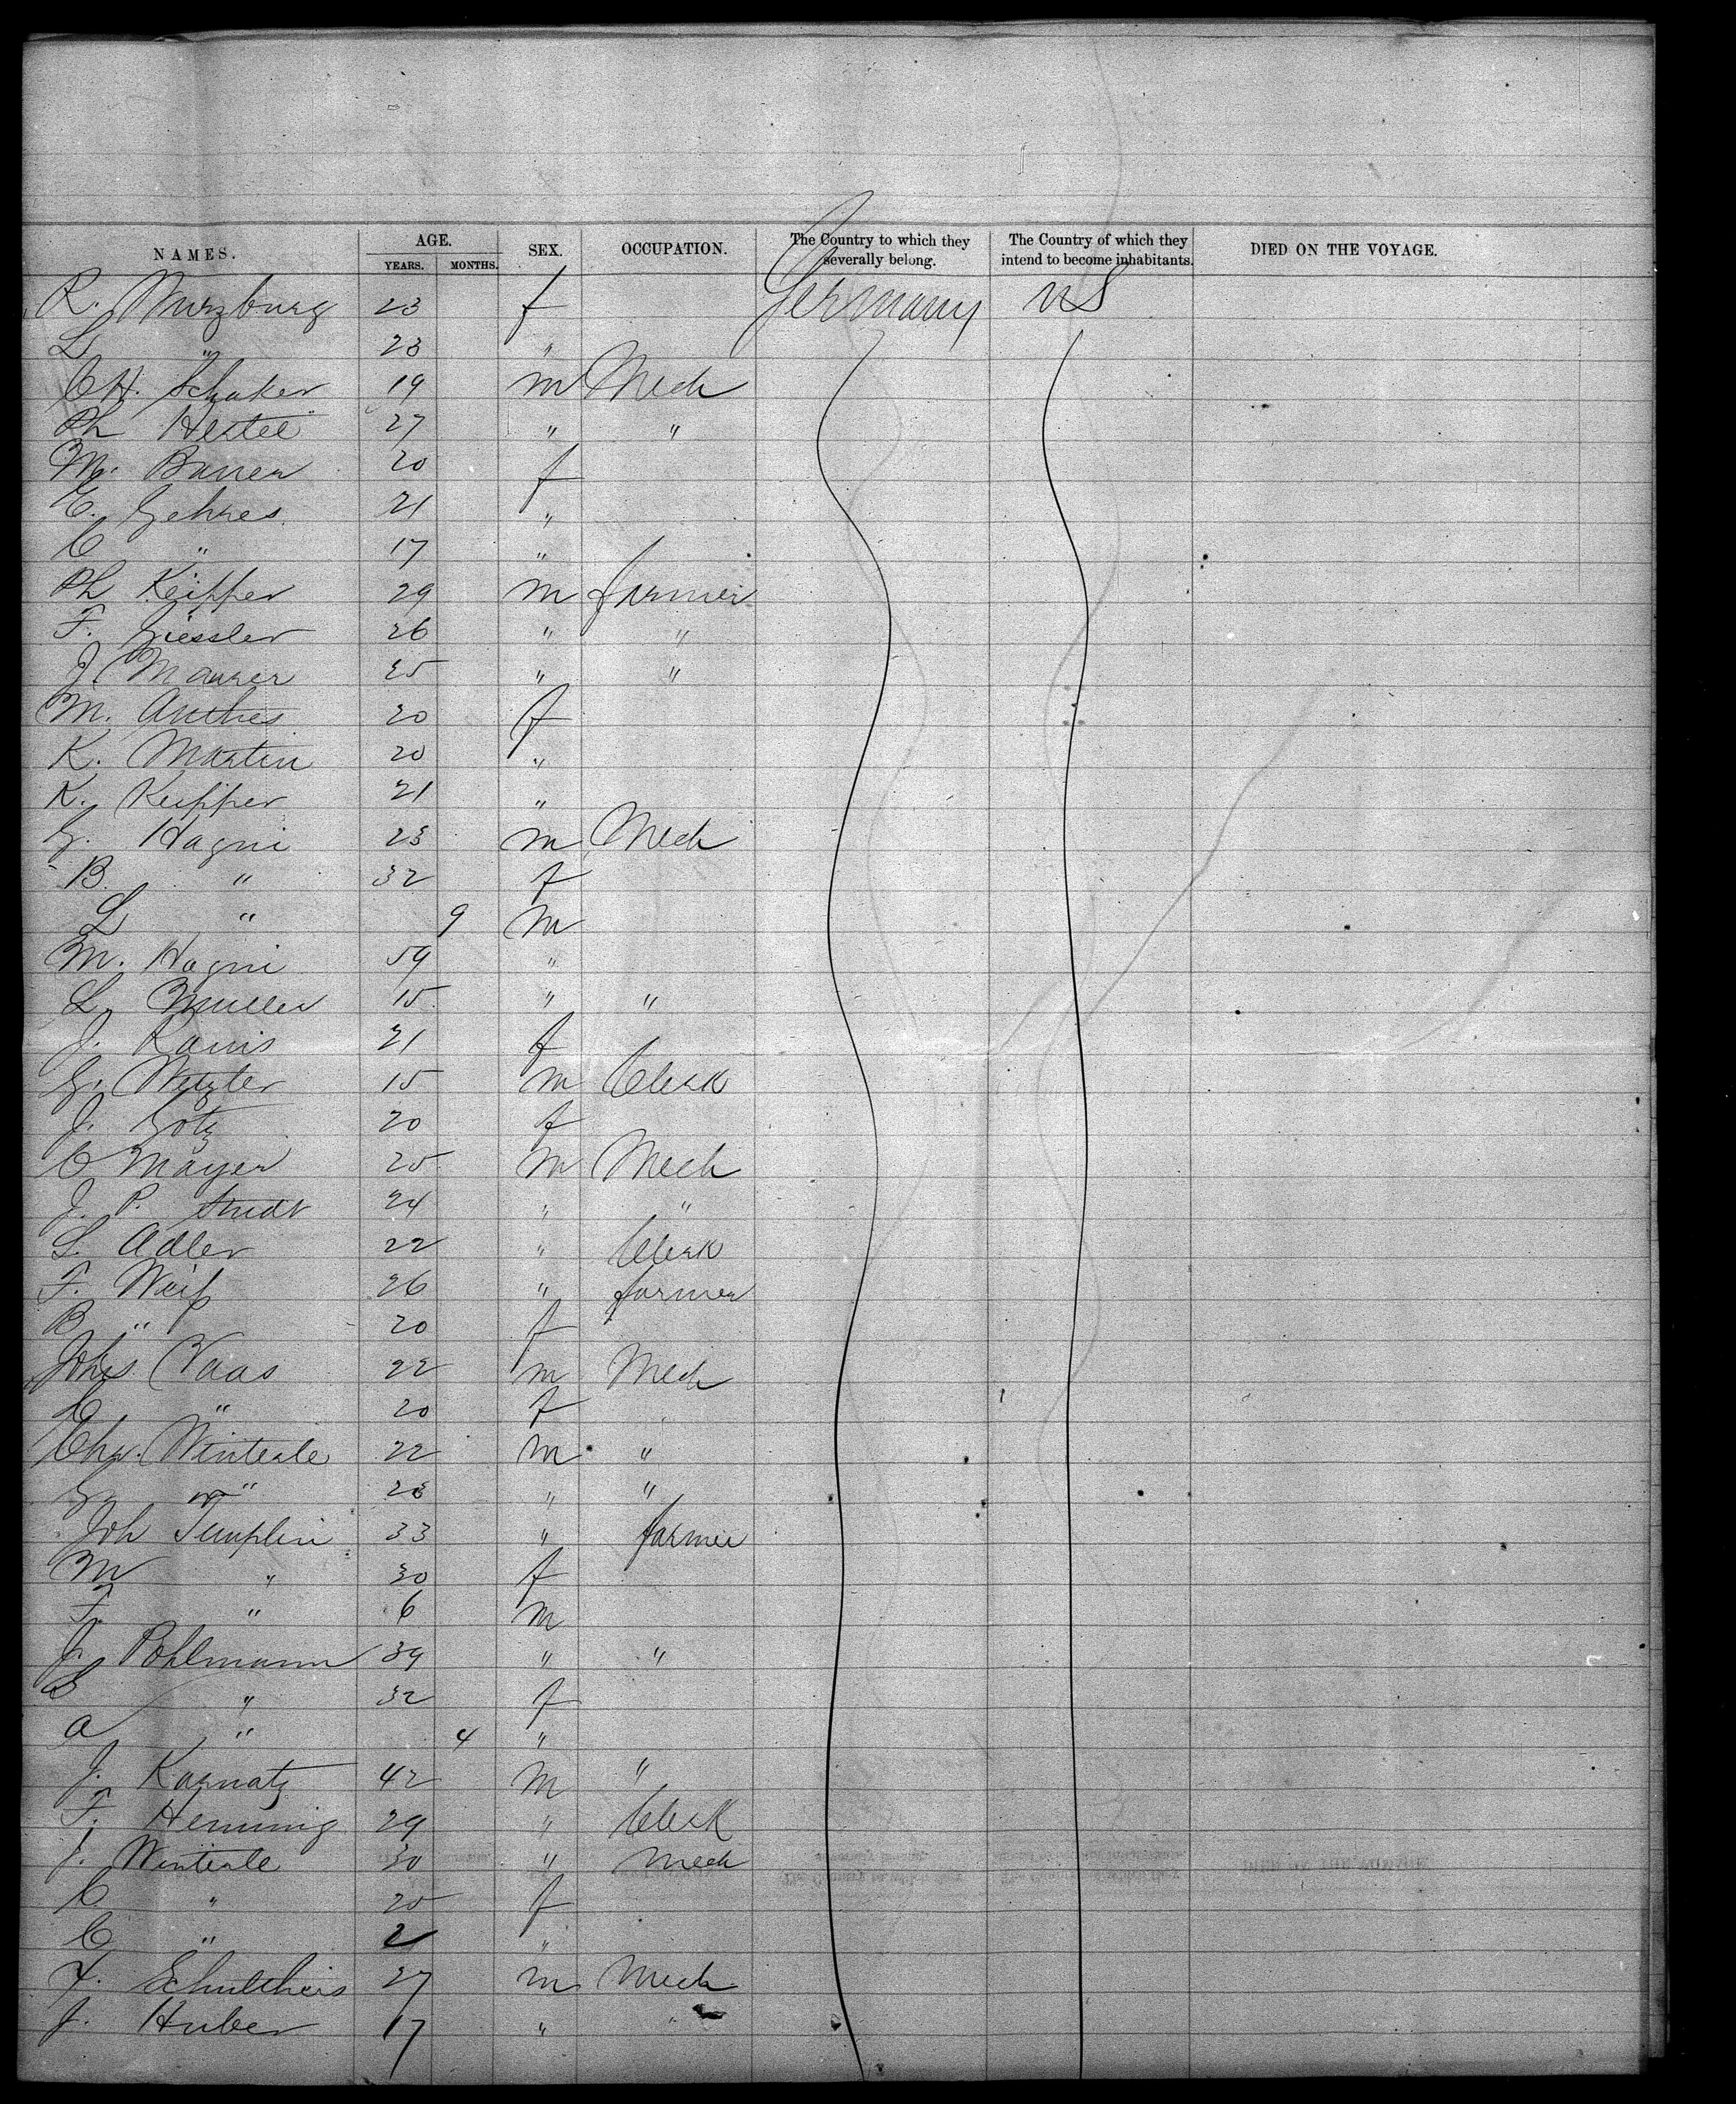 NAMES. AGE. YEARS. MONTHS. SEX. OCCUPATION. The Country to which they severally belong. The Country of which they intend to become inhabitants. DIED ON THE VOYAGE.
R. Wurzburg 23 f Germany US
L " 23 "
CH. Schuker 19 m Mech
Ph Hertel 27 " "
M. Bauer 20 f
E. Gehres 21 "
C " 17 "
Ph Keipper 29 m farmer
F. Giessler 26 " "
J. Maurer 25 " "
M. Anthes 20 f
K. Martin 20 "
K. Keipper 21 "
G. Hagni 23 m Mech
B. " 32 f
L " 9 m
M. Hagni 59 "
L. Muller 15 " "
J. 21 f
G. Wetzler 15 m Clerk
J. Gotz 20 f
C Mayer 25 m Mech
J. P. Studt 24 " "
L. Adler 22 " Clerk
F. Weiß 26 " farmer
B " 20 f
Johs. Vaas 22 m Mech
C " 20 f
Chr. Winterle 22 m "
G. " 23 " "
Joh Templin 33 " farmer
M " 30 f
F. " 6 m
J. Pohlmann 39 " "
S " 32 f
A " 4 "
J. Karnatz 42 m "
F. Henning 29 " Clerk
J. Winterle 30 " Mech
C. " 25 f
C. " 2 "
F. Schultheis 27 m Mech
J. Huber 17 " "